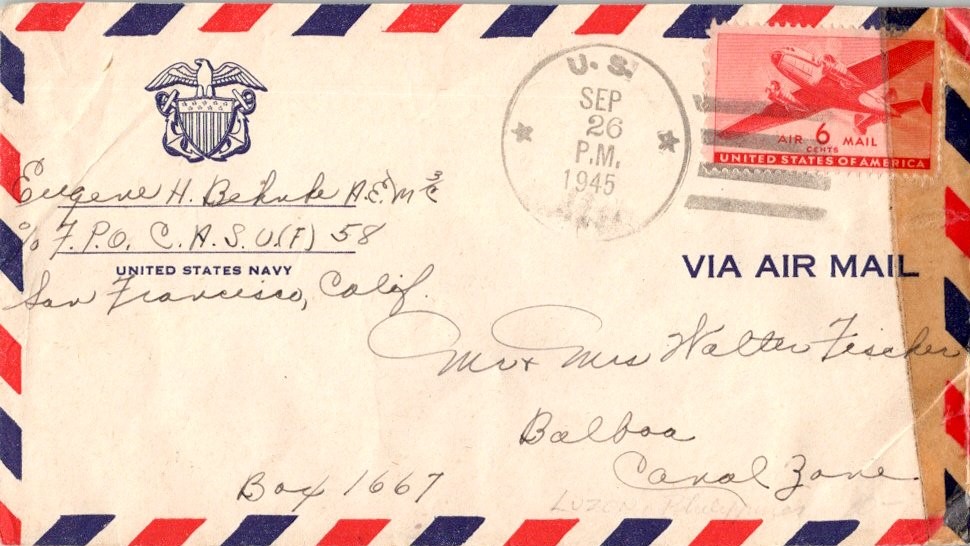 Eugene H. Behnke A.E.M 3/c
% F.P.O. C.A.S.U.(F) 58
UNITED STATES NAVY
San Francisco, Calif.
U.S.
SEP
26
P.M.
1945
AIR 6 MAIL
CENTS
UNITED STATES OF AMERICA
VIA AIR MAIL
Mr + Mrs Walter Fischer
Balboa
Canal Zone.
Box 1667
LUZON Philippines